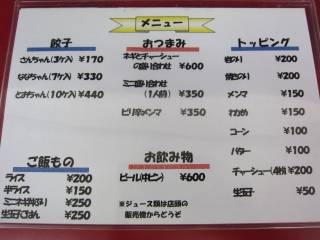 メニュー
餃子
さんちゃん(3ケ入) ¥170
ななちゃん(7ケ入) ¥330
とおちゃん(10ケ入) ¥440
ご飯もの
ライス ¥200
半ライス ¥150
ミニネギチャーシュー ¥250
生玉子ごはん ¥250
おつまみ
ネギとチャーシュー
の盛り合わせ ¥600
ミニ盛り合わせ
(1人前) ¥350
ピリ辛メンマ ¥350
お飲み物
ビール(中ビン) ¥600
※ジュース類は店頭の
販売機からどうぞ
トッピング
岩のり ¥200
焼きのり ¥200
メンマ ¥150
わかめ ¥150
コーン ¥100
バター ¥100
チャーシュー(4枚) ¥200
生玉子 ¥50